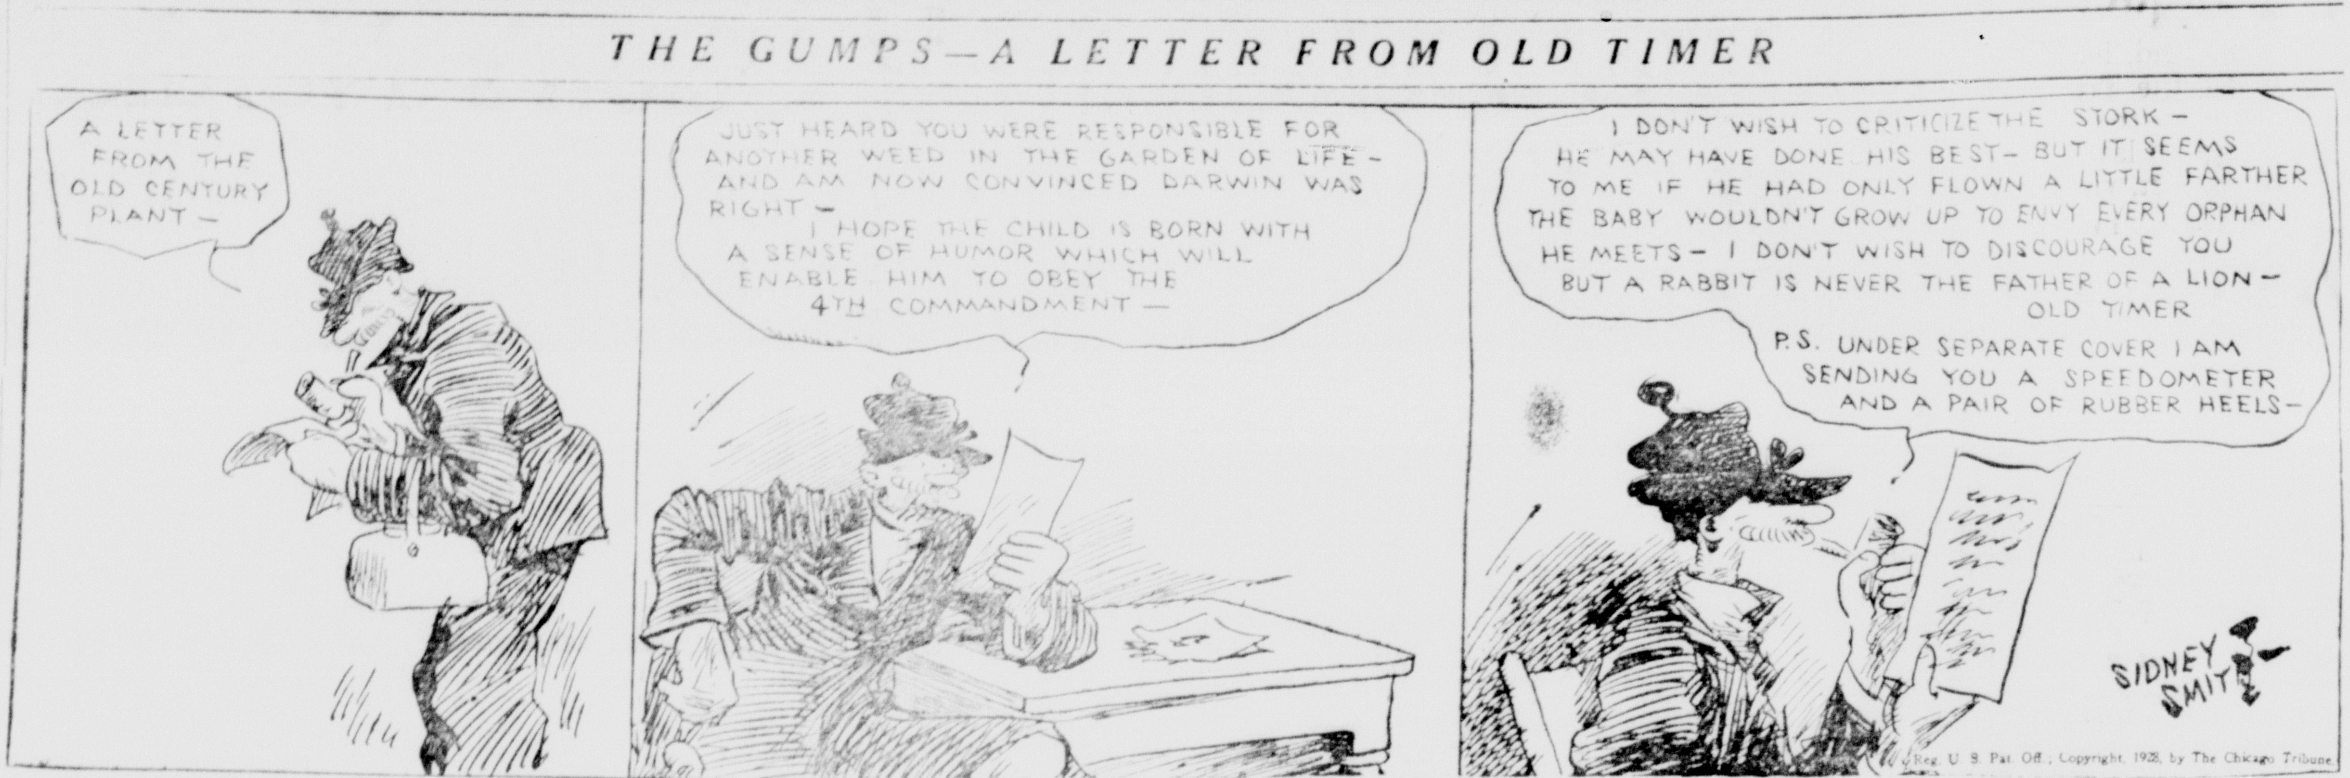 THE GUMPS—A LETTER FROM OLD TIMER
A LETTER
FROM THE
OLD CENTURY
PLANT—
JUST HEARD YOU WERE RESPONSIBLE FOR
ANOTHER WEED IN THE GARDEN OF LIFE—
AND AM NOW CONVINCED DARWIN WAS
RIGHT—
I HOPE THE CHILD IS BORN WITH
A SENSE OF HUMOR WHICH WILL
ENABLE HIM TO OBEY THE
4TH COMMANDMENT—
I DON'T WISH TO CRITICIZE THE STORK—
HE MAY HAVE DONE HIS BEST— BUT IT SEEMS
TO ME IF HE HAD ONLY FLOWN A LITTLE FARTHER
THE BABY WOULDN'T GROW UP TO ENVY EVERY ORPHAN
HE MEETS— I DON'T WISH TO DISCOURAGE YOU
BUT A RABBIT IS NEVER THE FATHER OF A LION—
OLD TIMER
P.S. UNDER SEPARATE COVER I AM
SENDING YOU A SPEEDOMETER
AND A PAIR OF RUBBER HEELS—
SIDNEY
SMITH
Reg. U. S. Pat. Off.; Copyright, 1928, by The Chicago Tribune